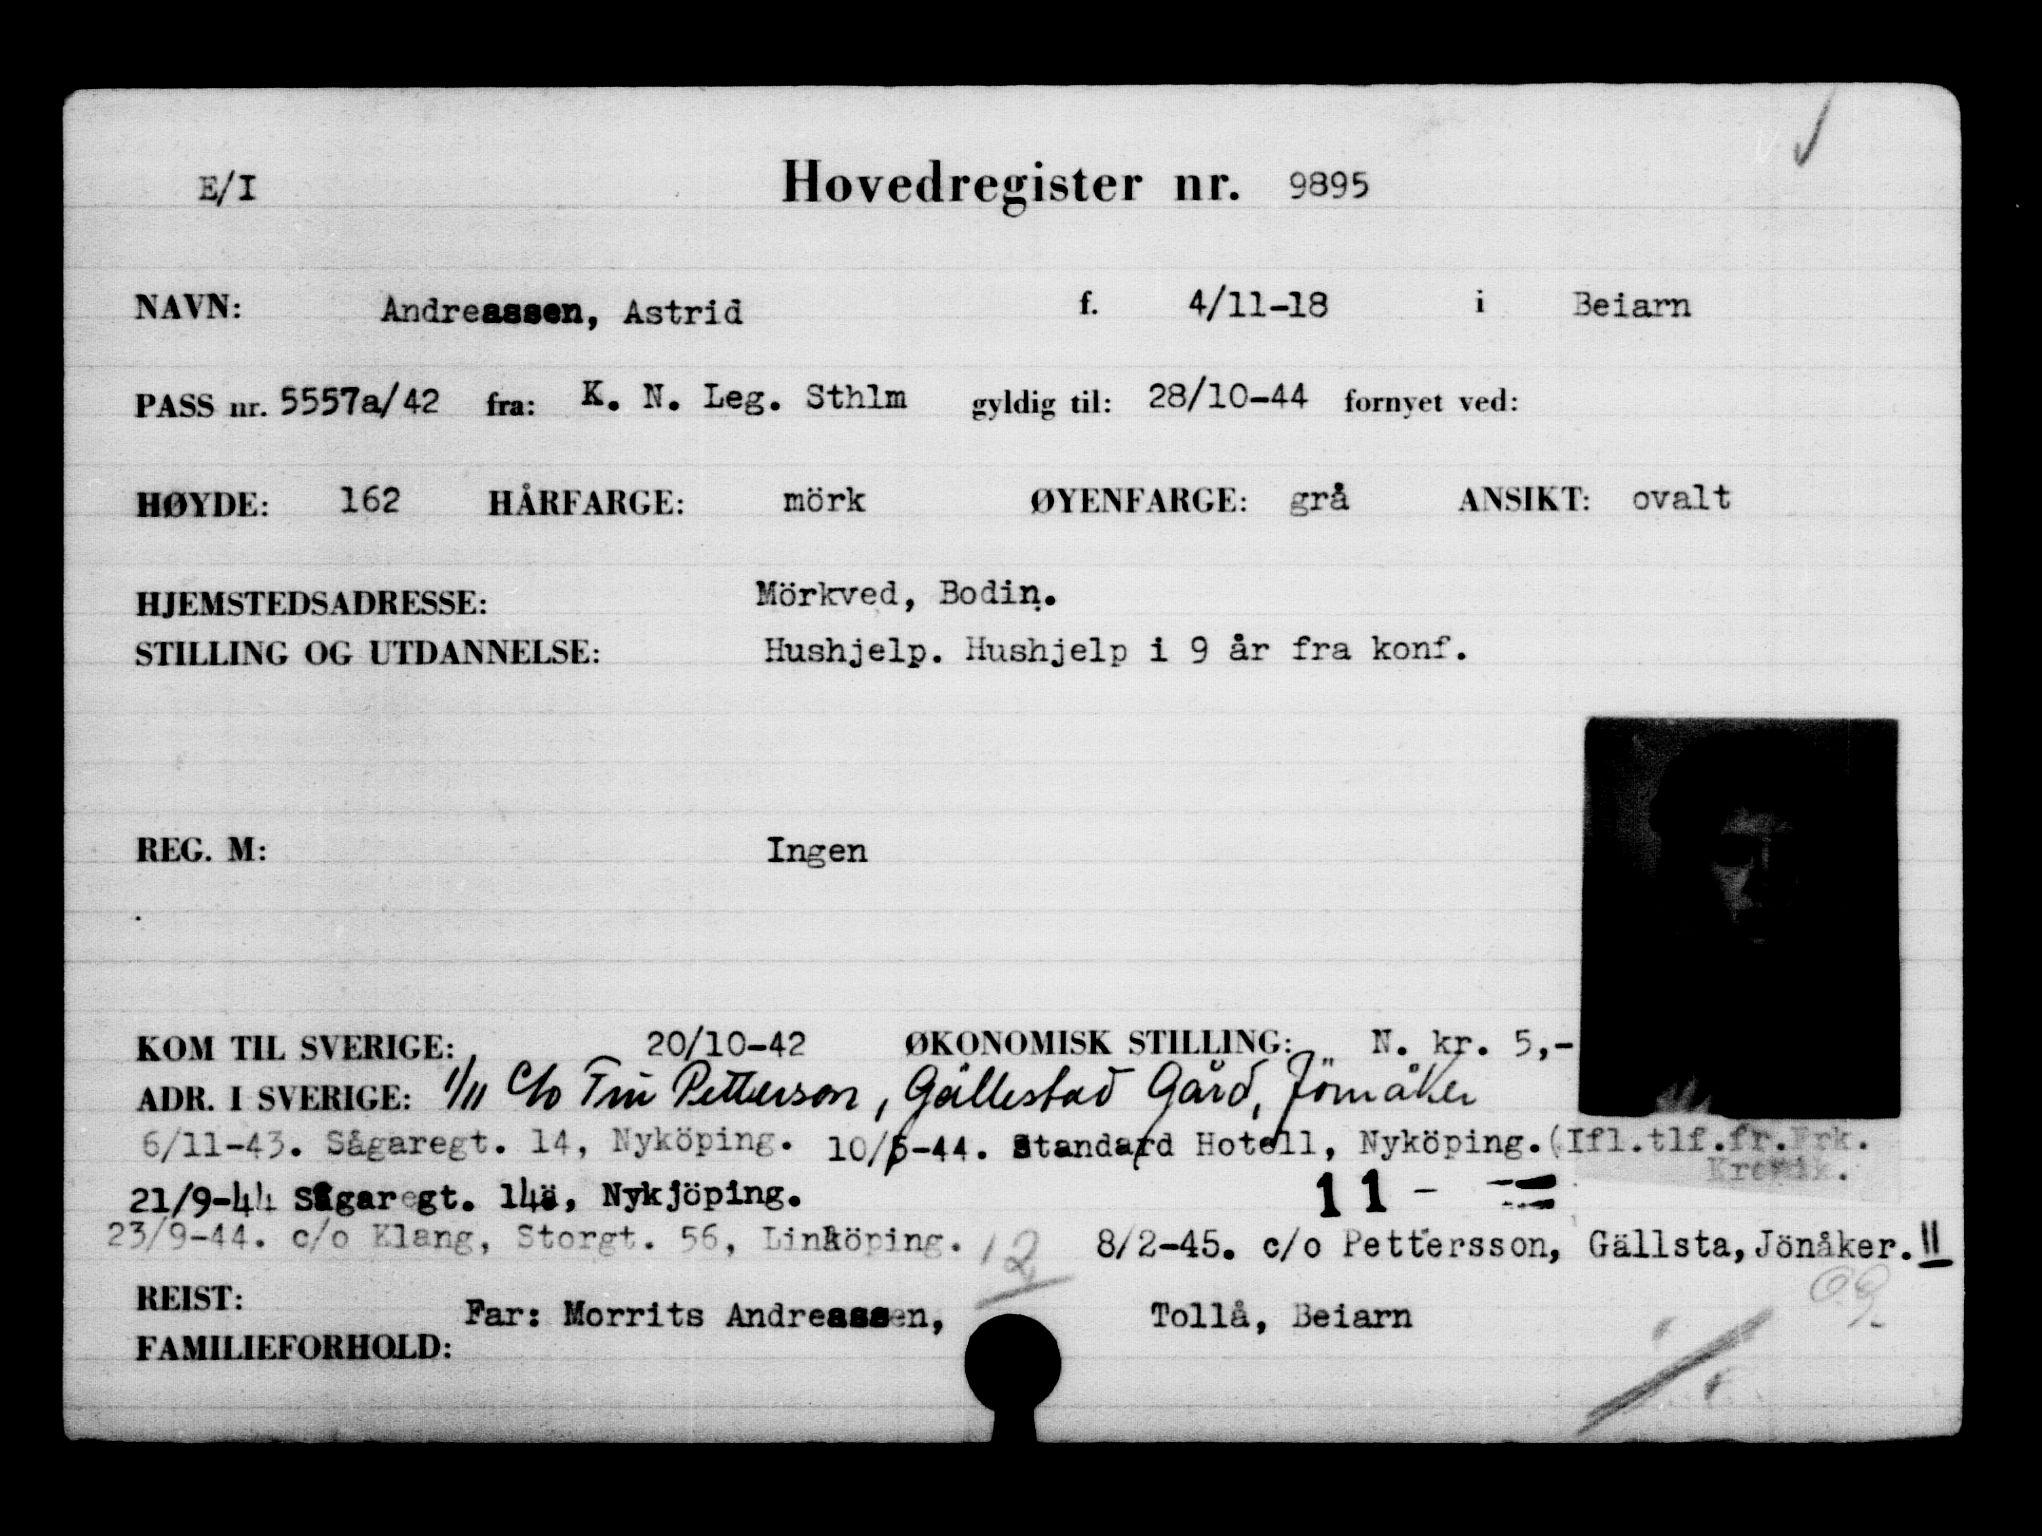 E/I Hovedregister nr. 9895
NAVN: Andreassen, Astrid f. 4/11-18 i Beiarn
PASS nr. 5557a/42 fra: K. N. Leg. Sthlm gyldig til: 28/10-44 fornyet ved:
HØYDE: 162 HÅRFARGE: mörk ØYENFARGE: grå ANSIKT: ovalt
HJEMSTEDSADRESSE: Mörkved, Bodin.
STILLING OG UTDANNELSE: Hushjelp. Hushjelp i 9 år fra konf.
REG. M: Ingen
KOM TIL SVERIGE: 20/10-42 ØKONOMISK STILLING: N. kr. 5,-
ADR. I SVERIGE: 1/11 c/o Petterson, Gällestad Gård, Jönåker
6/11-43. Sågaregt. 14, Nyköping. 10/5-44. Standard Hotell, Nyköping. (Ifl.tlf.fr.Frk.
21/9-44 Sågaregt. 14a, Nykjöping. 11 -
23/9-44. c/o Klang, Storgt. 56, Linköping. 12 8/2-45. c/o Pettersson, Gällsta, Jönåker. 11
REIST:
Far: Morrits Andreassen, Tollå, Beiarn
FAMILIEFORHOLD: